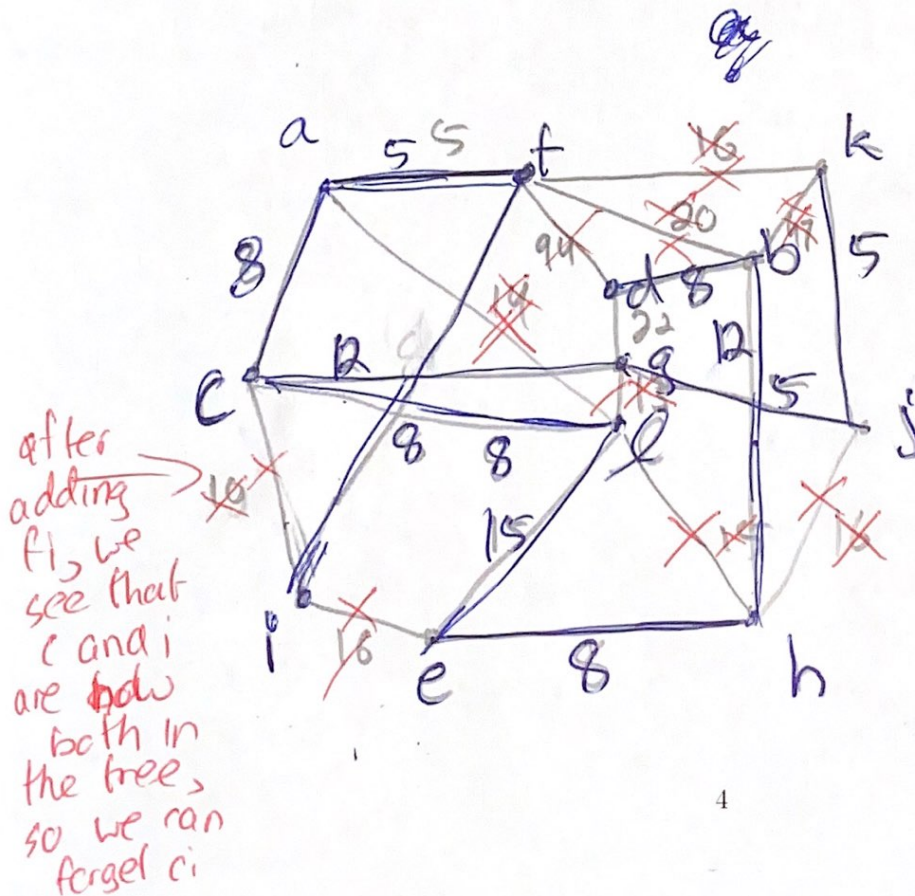 a
5
5
f
16
k
20
17
94
8
d
8
b
5
22
12
14
12
g
5
j
c
8
8
l
after
adding
fi, we
see that
c and i
are now
both in
the tree,
so we can
forget ci
15
i
16
e
8
h
4